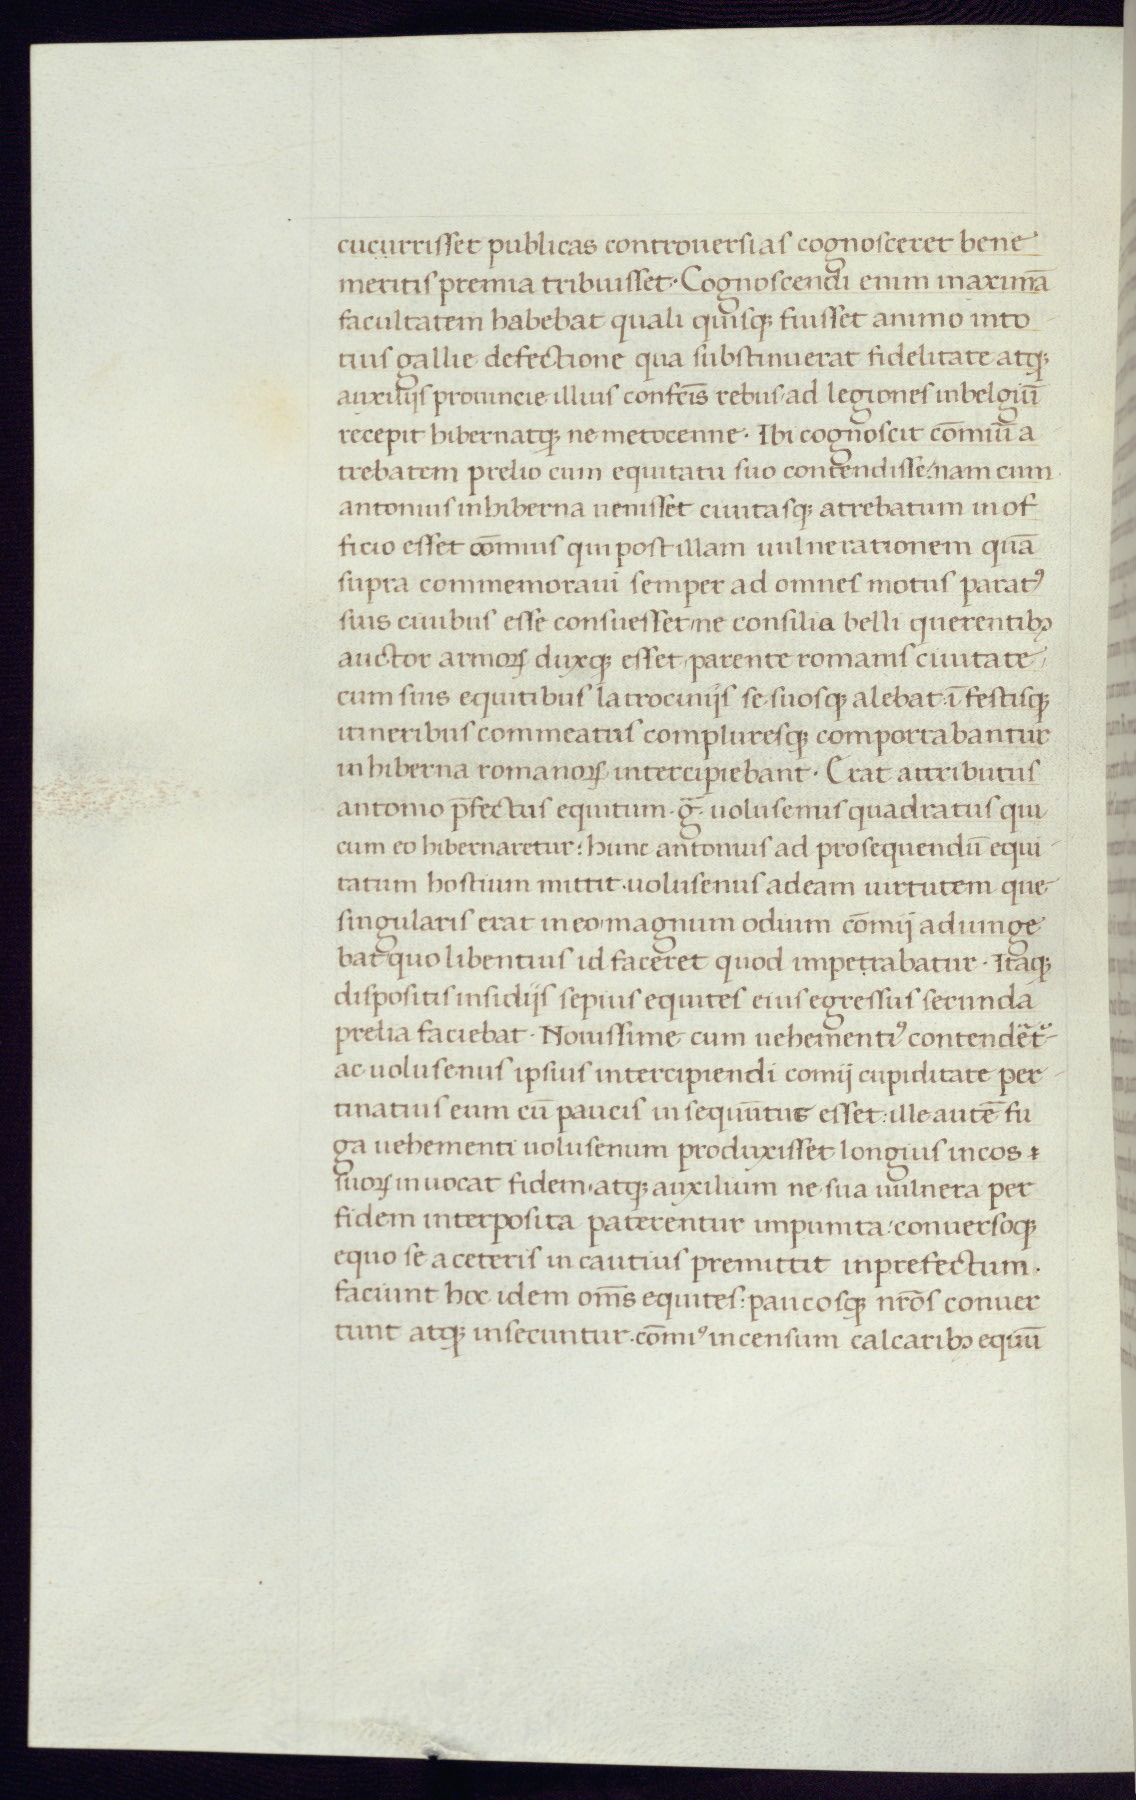 cucurrisset publicas controuersias cognosceret bene
meritis premia tribuisset· Cognoscendi enim maximā
facultatem habebat quali quisqꝫ fuisset animo into
tius gallie defectione qua substinuerat fidelitate atqꝫ
auxilijs prouincie illius confeĩs rebus ad legiones inbelgiū
recepit hibernatqꝫ nemetocenne· Ibi cognoscit cōmiū a
trebatem prelio cum equitatu suo contendisse/nam cum
antonius inhiberna uenisset ciuitasqꝫ atrebatum in of
ficio esset cōmius qui post illam uulnerationem quā
supra commemoraui semper ad omnes motus paratꝰ
suis ciuibus esse consuesset/ne consilia belli querentibꝫ
auctor armoꝝ duxqꝫ esset/parente romanis ciuitate/
cum suis equitibus latrocinijs se suosqꝫ alebat ī festisqꝫ
itineribus commeatus compluresqꝫ comportabantur
inhiberna romanoꝝ intercipiebant· Erat attributus
antonio p̄fectus equitum·ḡ·uolusenus quadratus qui
cum eo hibernaretur: hunc antonius ad prosequendū equi
tatum hostium mittit·uolusenus adeam uirtutem que
singularis erat in eo/magnum odium cōmij adiunge
bat quo libentius id faceret quod impetrabatur· Itaqꝫ
dispositis insidijs sepius equites eius egressus secunda
prelia faciebat· Nouissime cum uehementiꝰ contendet̄
ac uolusenus ipsius intercipiendi comij cupiditate per
tinatius eum cū paucis insequūtus esset: ille autē fu
ga uehementi uolusenum produxisset longius incos ⁊
suoꝝ inuocat fidem·atqꝫ auxilium ne sua uulnera per
fidem interposita paterentur impunita: conuersoqꝫ
equo se a ceteris in cautius premittit inprefectum·
faciunt hoc idem om̄s equites: paucosqꝫ nr̄os conuer
tunt atqꝫ insecuntur·cōmiꝰ incensum calcaribꝫ equū